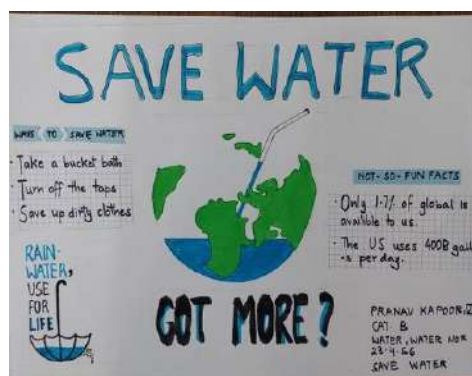 SAVE WATER
WAYS TO SAVE WATER
• Take a bucket bath
• Turn off the taps
• Save up dirty clothes
RAIN-
WATER,
USE
FOR
LIFE
GOT MORE?
NOT-SO-FUN FACTS
• Only 1.7% of global is
available to us.
• The US uses 400B gall
-s per day.
PRANAV KAPOOR,
CAT B
WATER, WATER
SAVE WATER